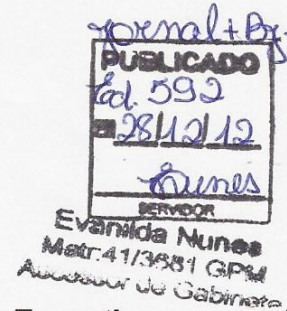 Jornal + Bj.
PUBLICADO
Ed. 592
28/12/12
Nunes
SERVIDOR
Evanilda Nunes
Matr.41/3681 GPM
Assessor de Gabinete